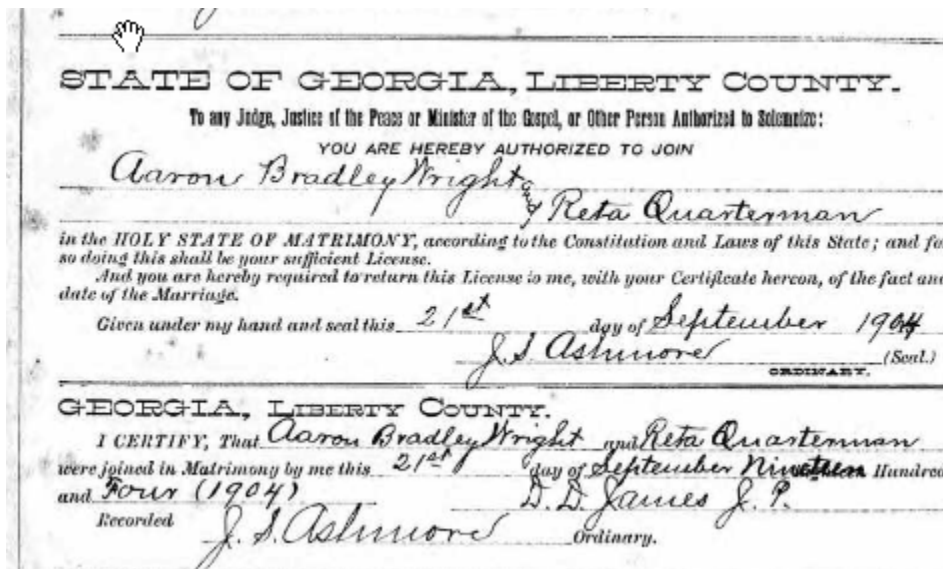 STATE OF GEORGIA, LIBERTY COUNTY.
To any Judge, Justice of the Peace or Minister of the Gospel, or Other Person Authorized to Solemnize:
YOU ARE HEREBY AUTHORIZED TO JOIN
Aaron Bradley Wright and
Reta Quarterman
in the HOLY STATE OF MATRIMONY, according to the Constitution and Laws of this State; and for
so doing this shall be your sufficient License.
And you are hereby required to return this License to me, with your Certificate hereon, of the fact and
date of the Marriage.
Given under my hand and seal this 21st day of September 1904
J. S. Ashmore (Seal.)
ORDINARY.
GEORGIA, LIBERTY COUNTY.
I CERTIFY, That Aaron Bradley Wright and Reta Quarterman
were joined in Matrimony by me this 21st day of September Nineteen Hundred
and Four (1904) D. D. James J. P.
Recorded J. S. Ashmore Ordinary.